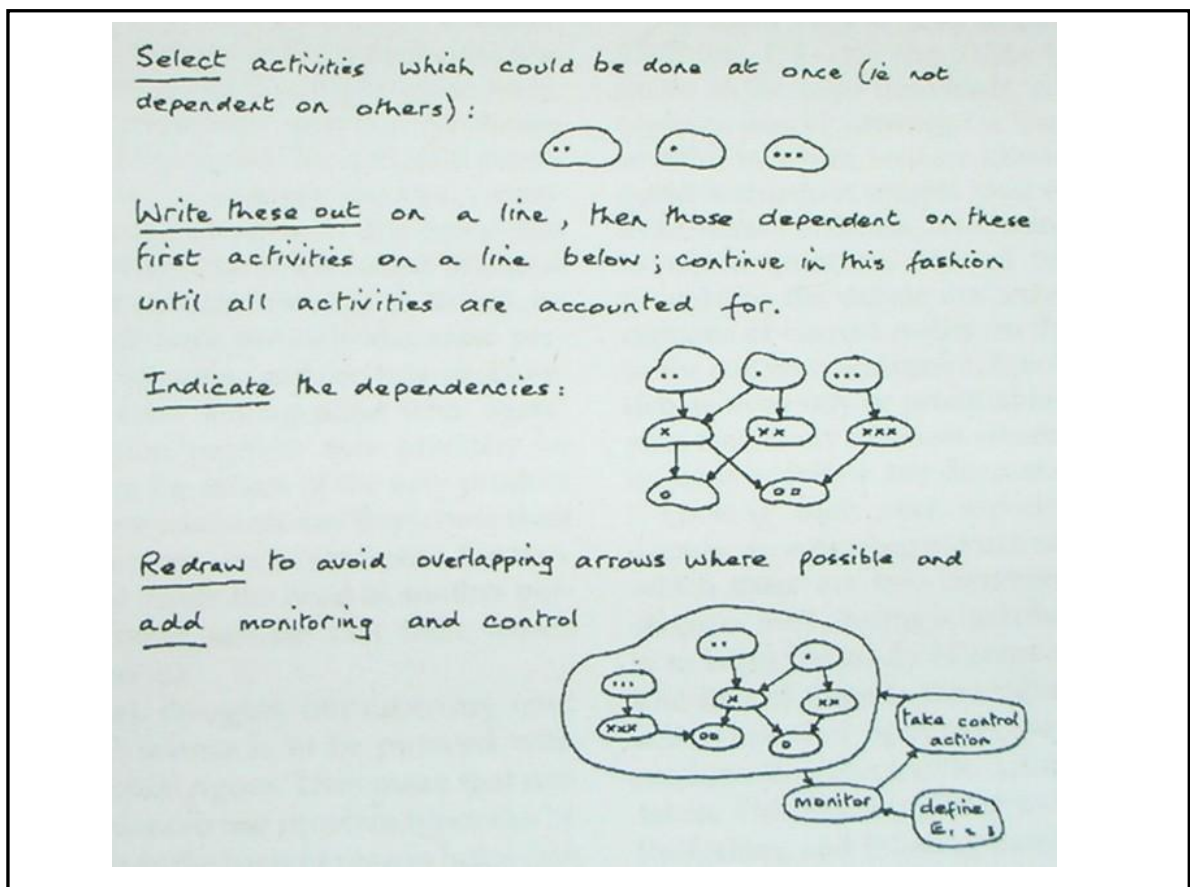 Select activities which could be done at once (ie not
dependent on others):
Write these out on a line, then those dependent on these
first activities on a line below; continue in this fashion
until all activities are accounted for.
Indicate the dependencies:
x xx xxx
Redraw to avoid overlapping arrows where possible and
add monitoring and control
x xx
xxx
take control
action
monitor
define
E, 1 2 3